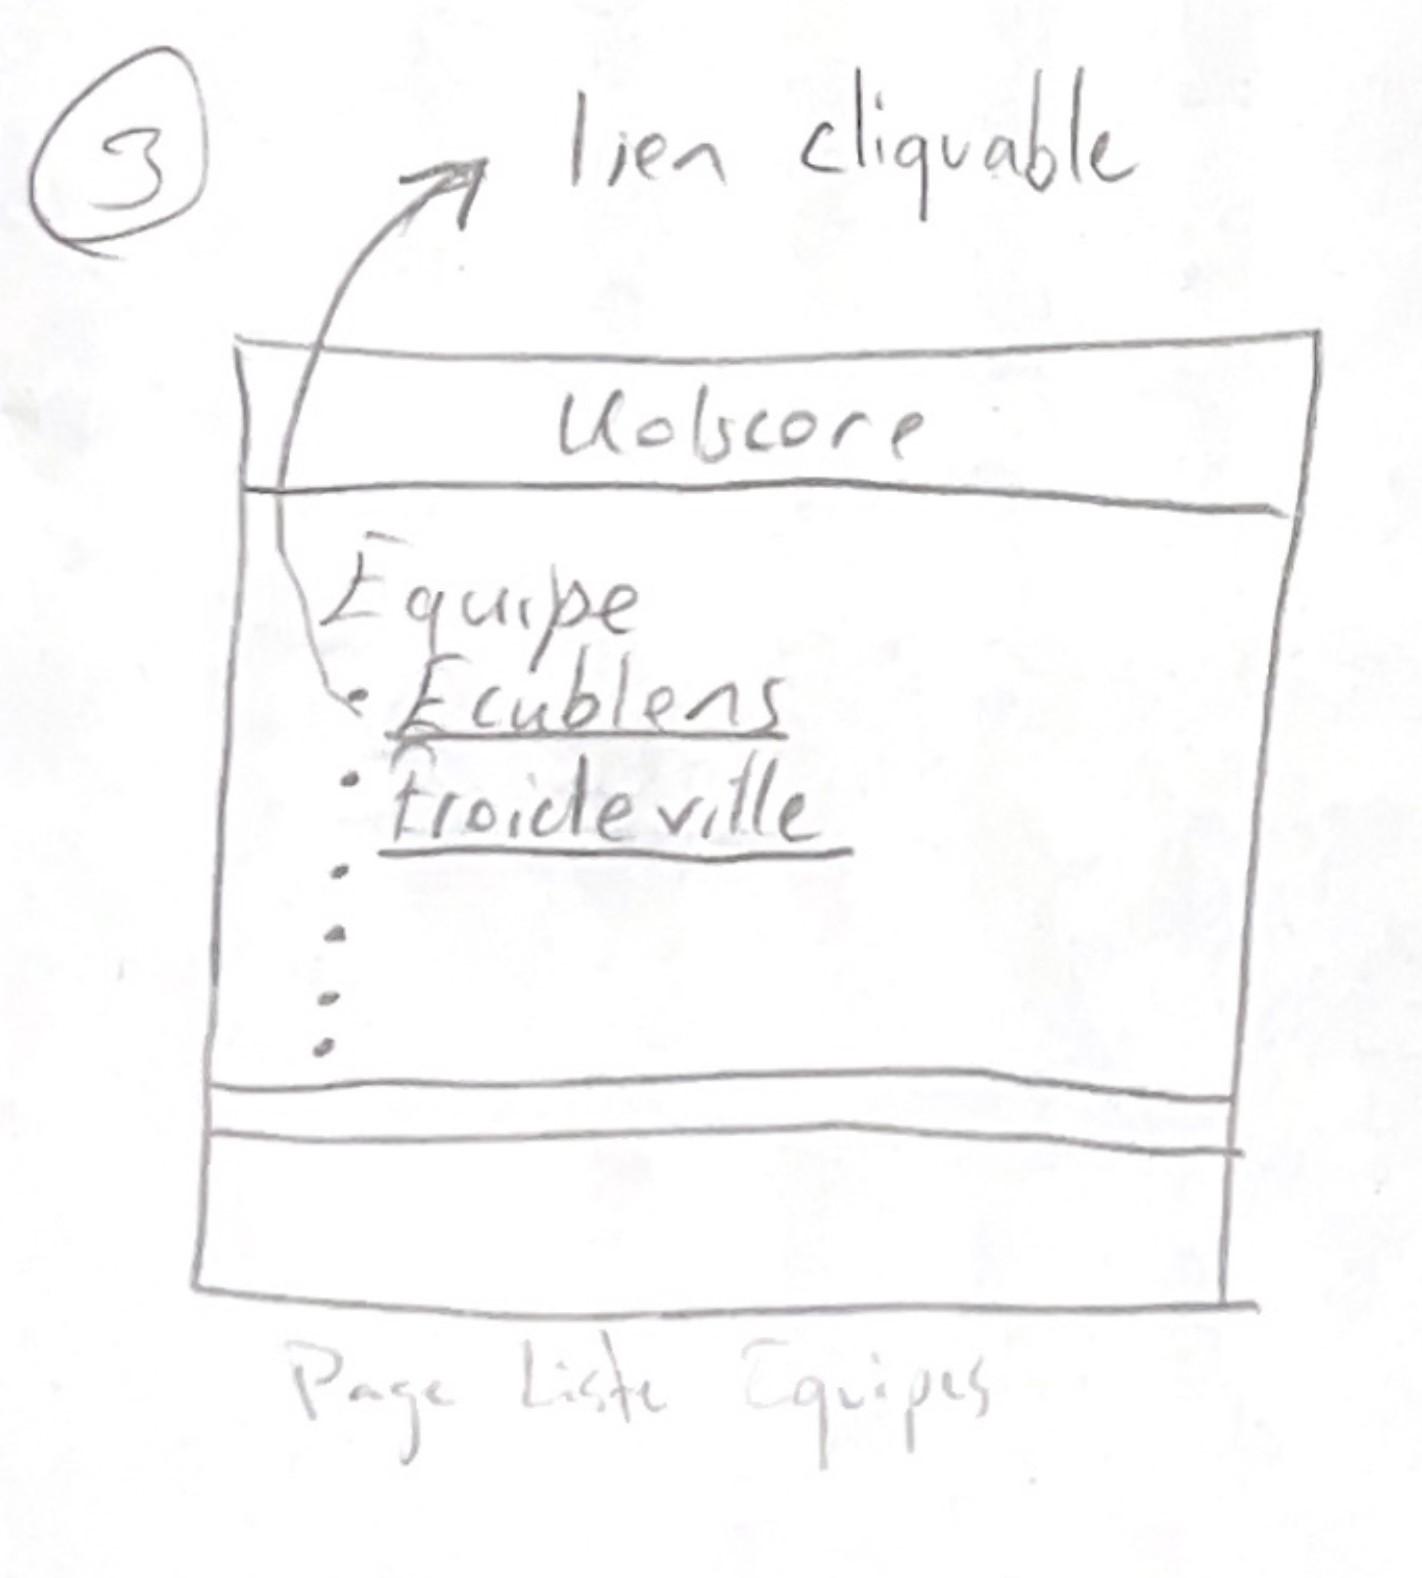 3
lien cliquable
Volscore
Equipe
• Ecublens
• Froideville
•
•
•
•
Page Liste Equipes